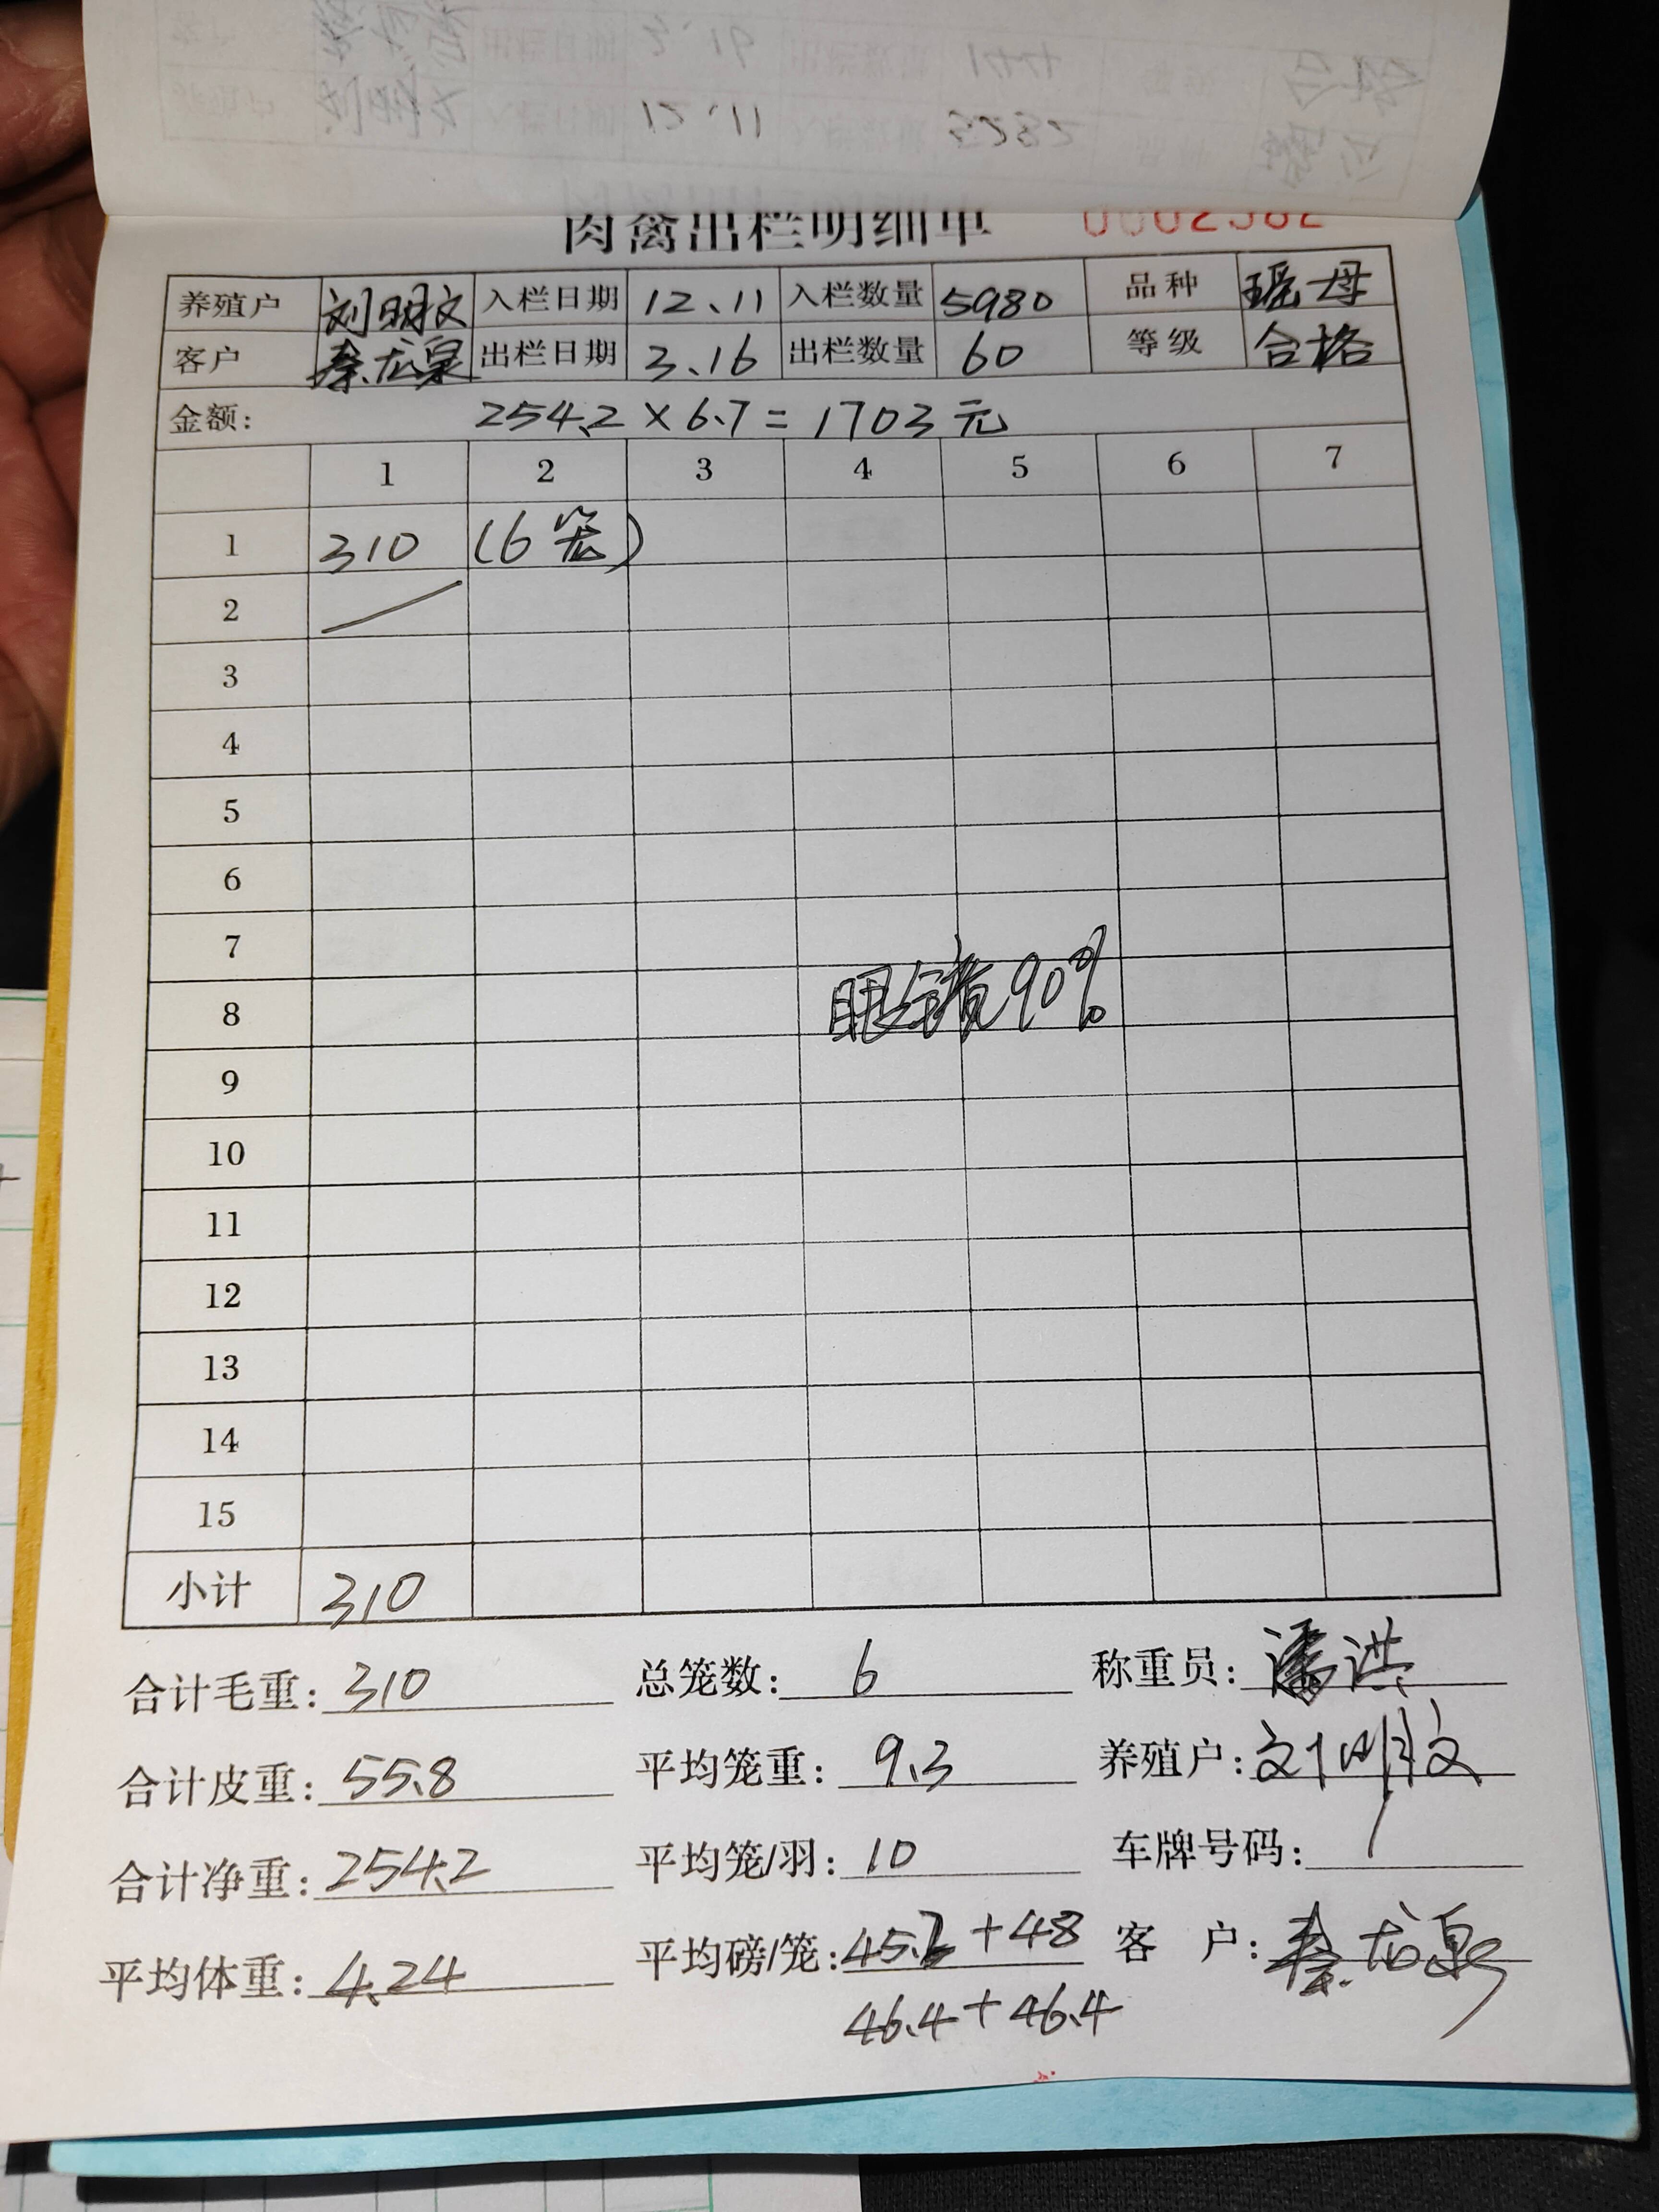 肉禽出栏明细单 0002582
养殖户 刘明文 入栏日期 12、11 入栏数量 5980 品种 瑶母
客户 秦龙泉 出栏日期 3、16 出栏数量 60 等级 合格
金额: 254.2 × 6.7 = 1703 元
1 2 3 4 5 6 7
1 310 (6笼)
2
3
4
5
6
7
8 眼镜90%
9
10
11
12
13
14
15
小计 310
合计毛重: 310 总笼数: 6 称重员: 潘洪
合计皮重: 55.8 平均笼重: 9.3 养殖户: 刘明文
合计净重: 254.2 平均笼/羽: 10 车牌号码:
平均体重: 4.24 平均磅/笼: +48 客 户: 秦龙泉
46.4+46.4